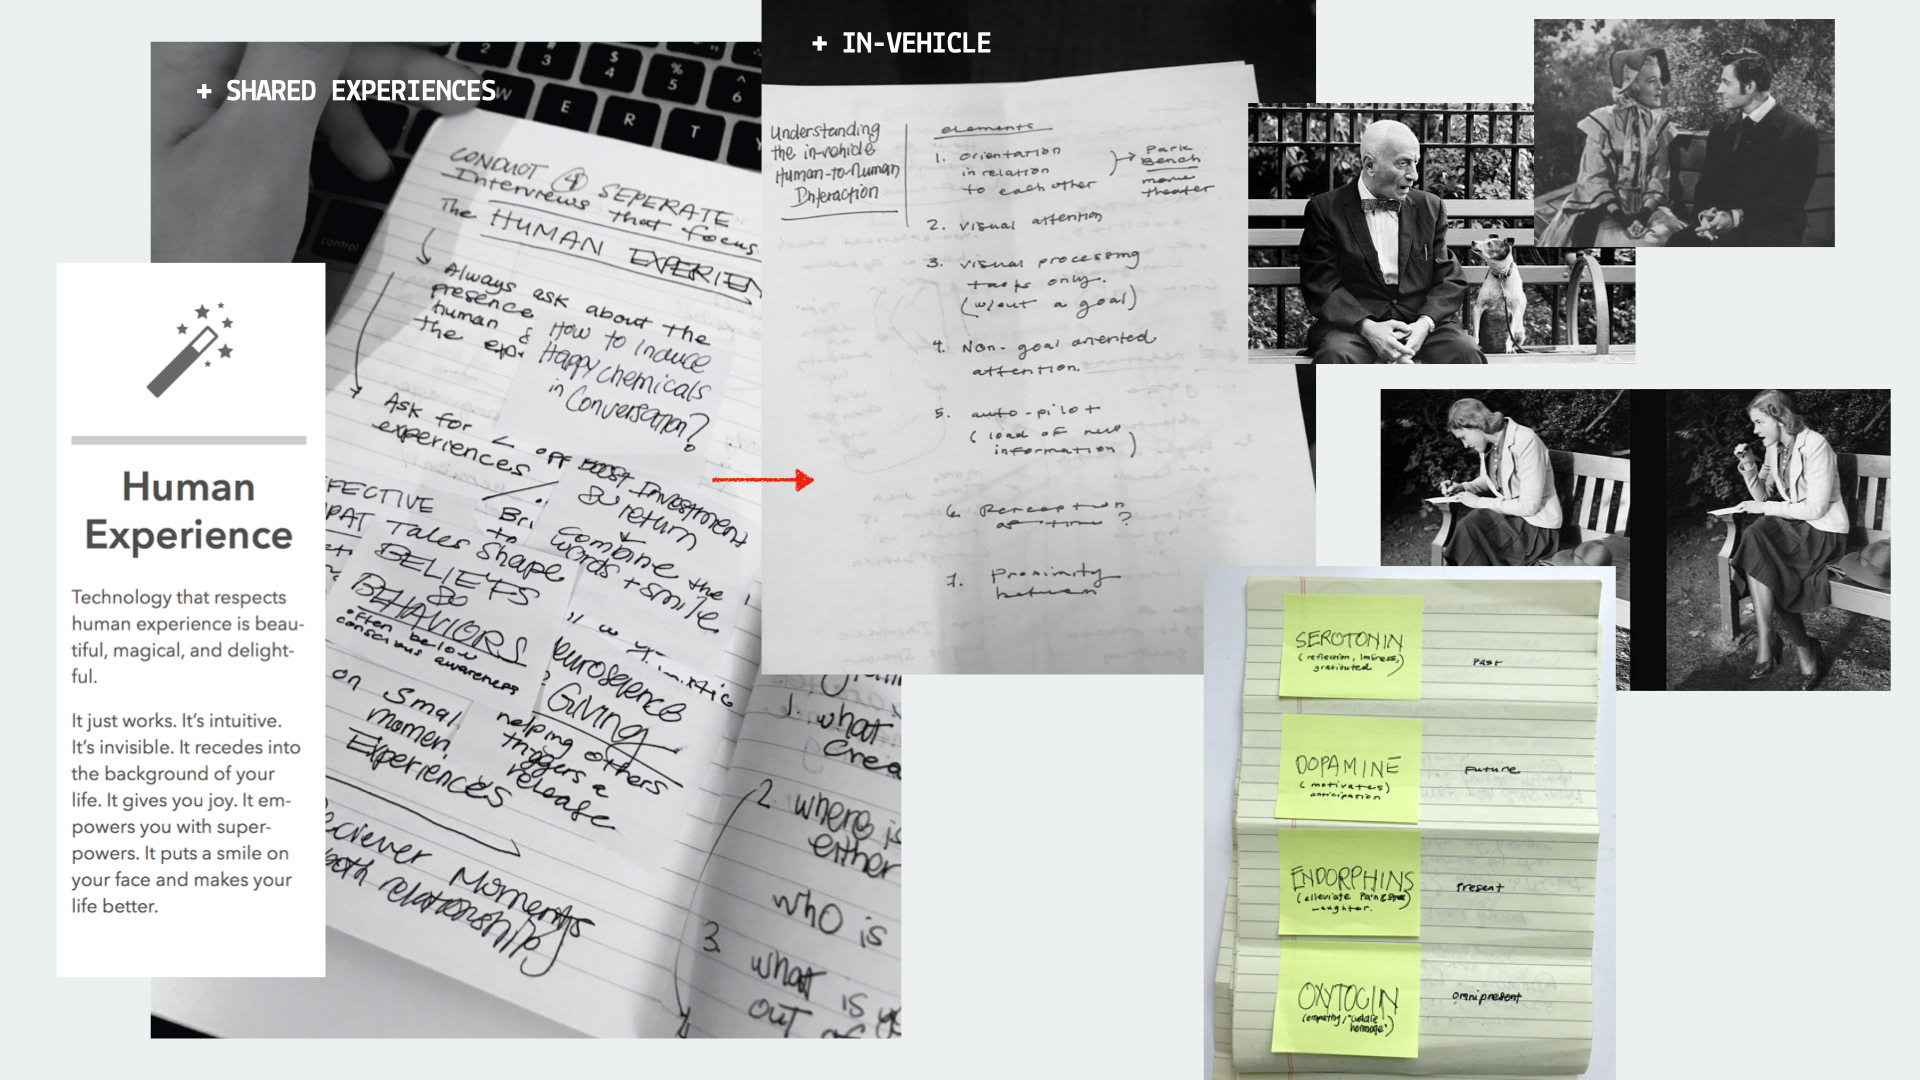 + SHARED EXPERIENCES
CONDUCT 4 SEPERATE
Interviews that focus
The HUMAN EXPERIEN
Always ask about the
presence
human &
the exp.
How to Induce
Happy chemicals
in Conversation?
Ask for
experiences
off best Investment
& return
Combine the
words + smile
Bri
to
FFECTIVE
Tales Shape
BELIEFS
&
BEHAVIORS
often below
conscious awareness
euroscience
? Giving
helping others
triggers a
release
on Smal
momen
Experiences
eciever Moments
both relationship
1. what
crea
2. where is
either
who is
3. what is y
out of
Human
Experience
Technology that respects
human experience is beau-
tiful, magical, and delight-
ful.
It just works. It’s intuitive.
It’s invisible. It recedes into
the background of your
life. It gives you joy. It em-
powers you with super-
powers. It puts a smile on
your face and makes your
life better.
+ IN-VEHICLE
Understanding
the in-vehicle
Human-to-human
Interaction
elements
1. orientation
in relation
to each other
Park
Bench
movie
theater
2. visual attention
3. visual processing
tasks only.
(w/out a goal)
4. Non-goal oriented
attention.
5. auto-pilot
(load of new
information)
6. Perception
of time ?
7. Proximity
between
SEROTONIN
(reflection,
gratituted
Past
DOPAMINE
(motivates)
anticipation
Future
ENDORPHINS
(alleviate Pain &
laughter.
Present
OXYTOCIN
(empathy/"cuddle
hormone")
omnipresent
W
E
R
T
2
3
$
4
%
5
^
6
control